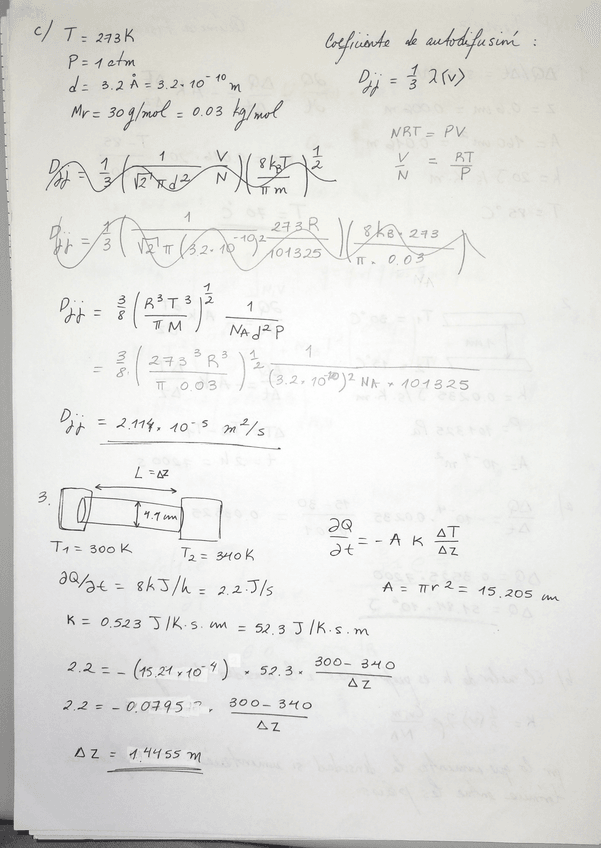 c/ T = 273K
P = 1 atm
d = 3.2 Å = 3.2 · 10⁻¹⁰ m
Mr = 30 g/mol = 0.03 kg/mol
Coeficiente de autodifusión :
Djj = 1/3 λ⟨v⟩
NRT = PV
V/N = RT/P
Djj = 1/3 (1/(√2 π d²) V/N) (8kBT/(π m))^1/2
Djj = 1/3 (1/(√2 π (3.2 · 10⁻¹⁰)²) 273R/101325) (8kB · 273/(π · 0.03))
Djj = 3/8 (R³T³/(πM))^1/2 1/(NA d² P)
= 3/8 · (273³R³/(π 0.03))^1/2 1/((3.2 · 10⁻¹⁰)² NA × 101325)
Djj = 2.114 × 10⁻⁵ m²/s
3.
L = ΔZ
4.4 cm
T1 = 300K T2 = 340K
∂Q/∂t = - A K ΔT/ΔZ
∂Q/∂t = 8kJ/h = 2.2 J/s
A = πr² = 15.205 cm
K = 0.523 J/K·s·cm = 52.3 J/K·s·m
2.2 = - (15.21 × 10⁻⁴) × 52.3 × (300 - 340)/ΔZ
2.2 = - 0.0795 × (300 - 340)/ΔZ
ΔZ = 1.4455 m